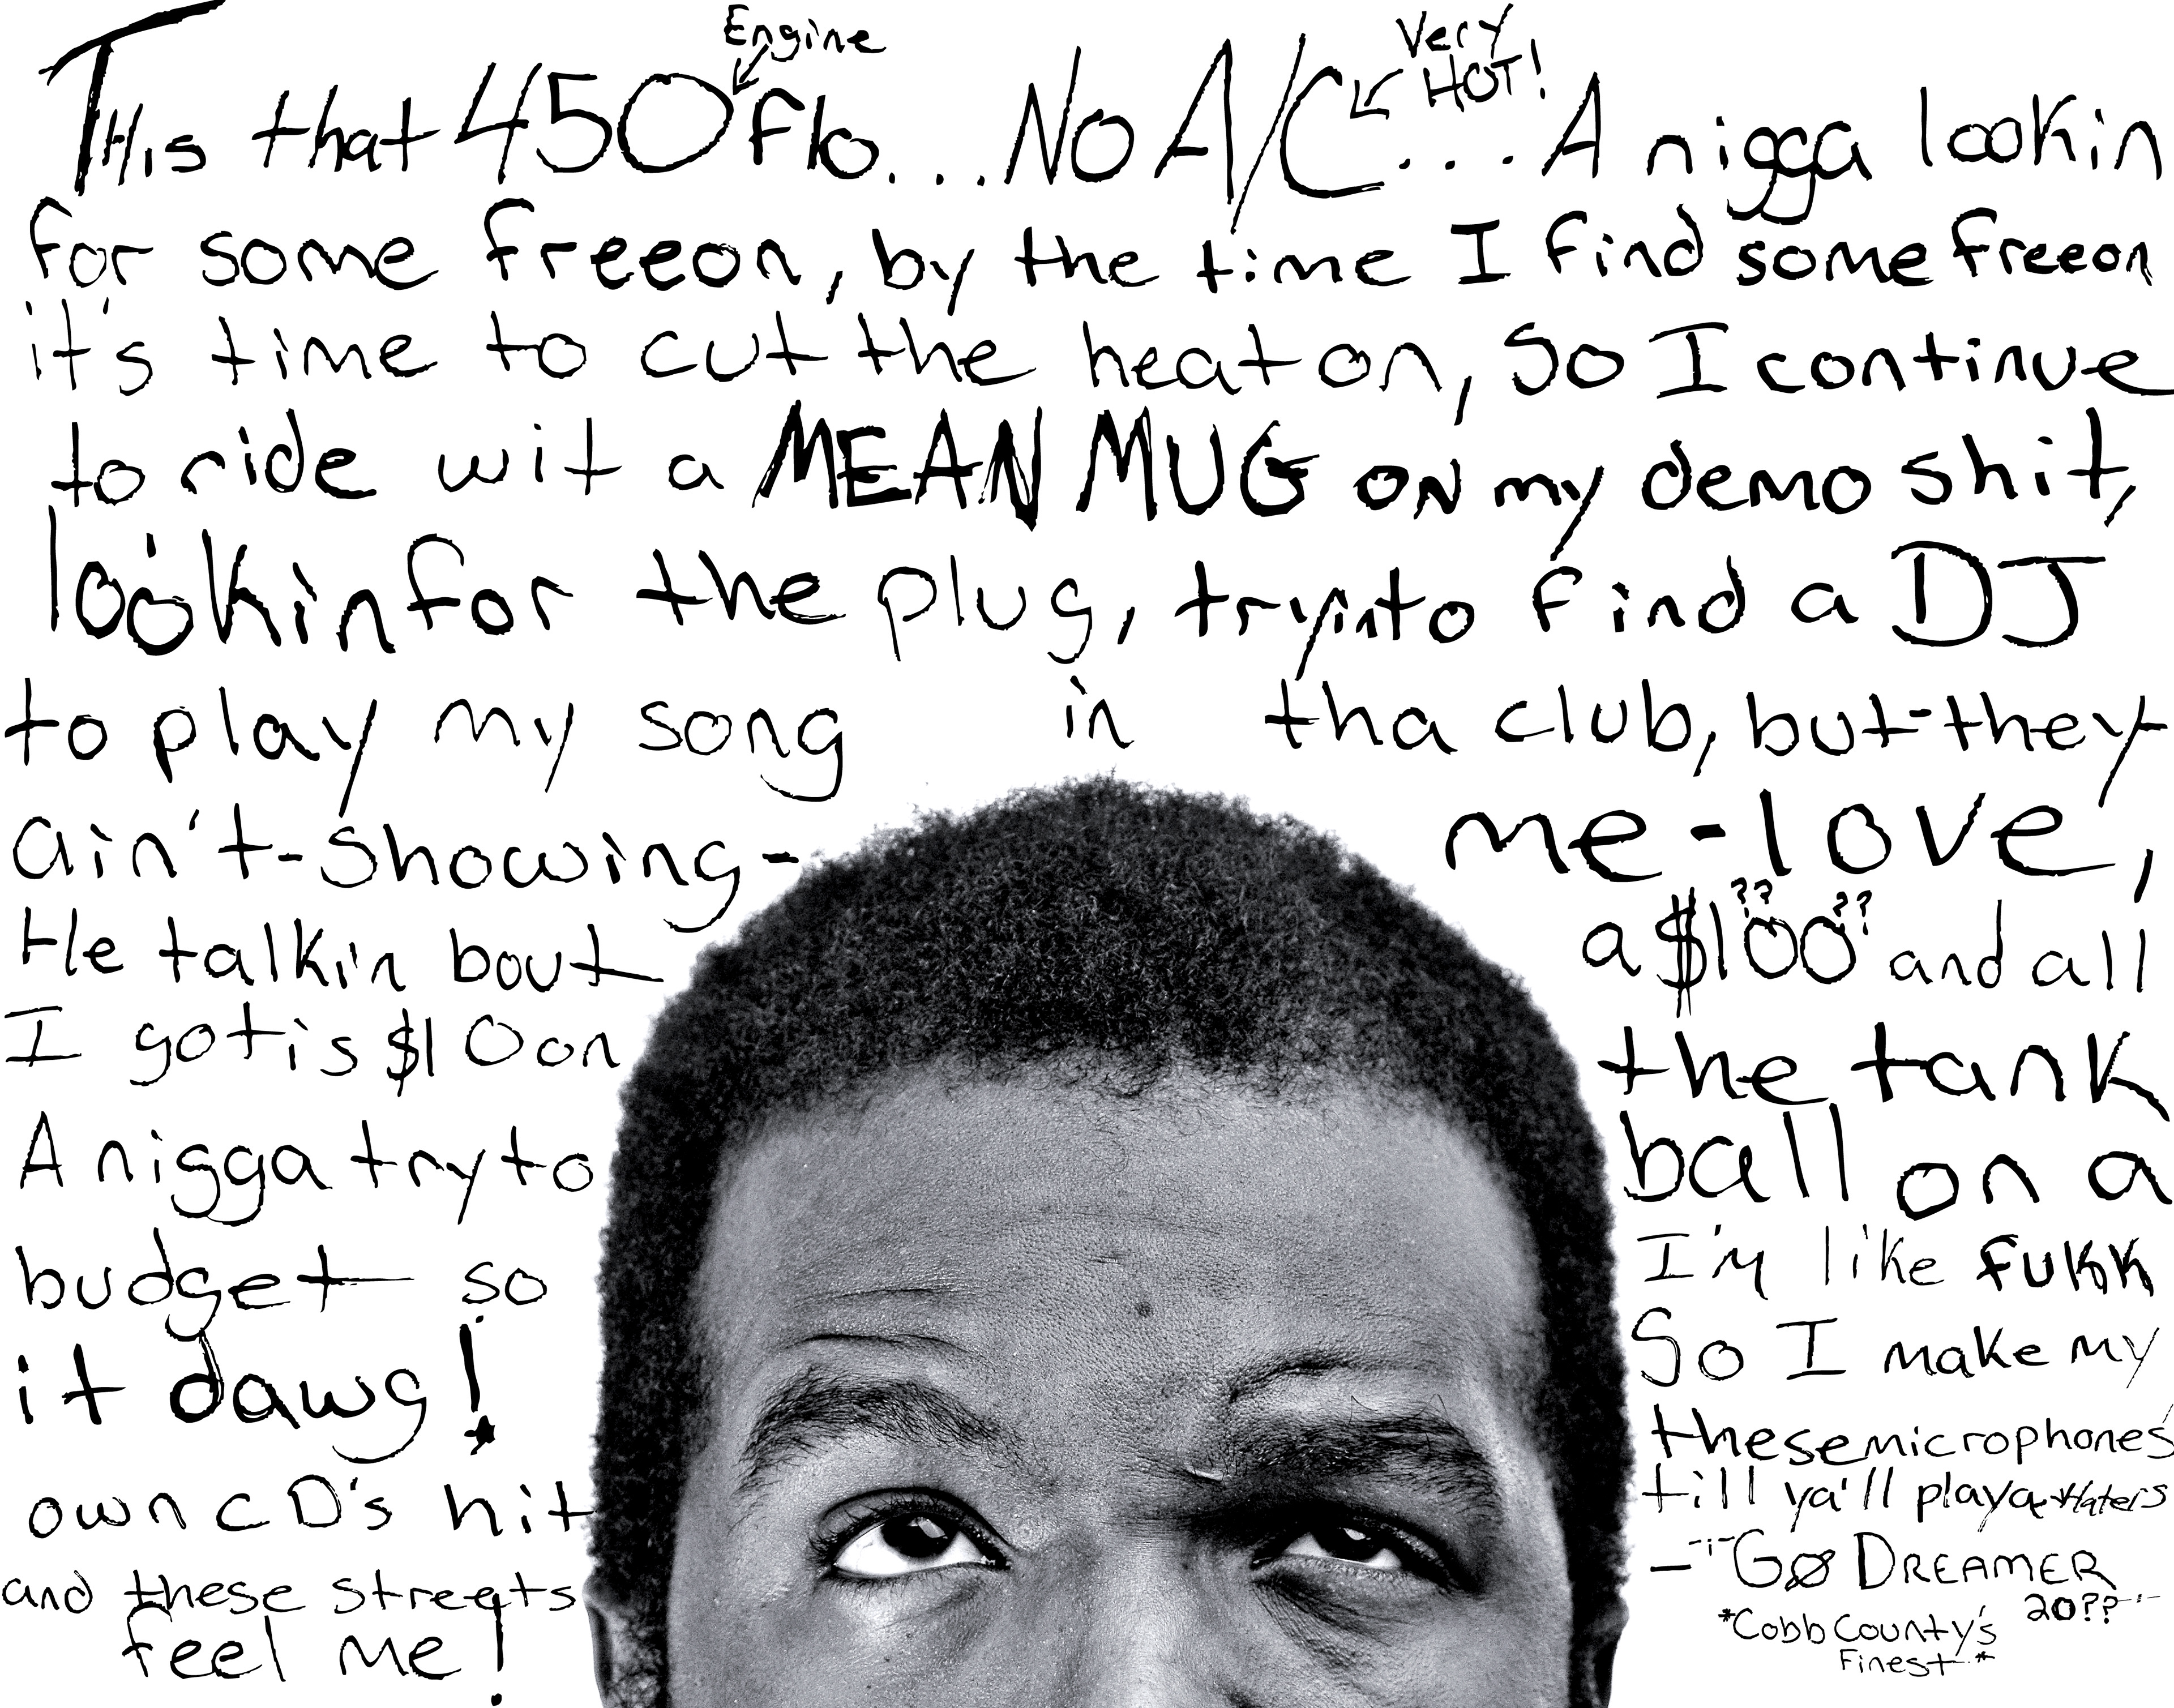 Engine
Very
HOT!
THis that 450 flo...No A/C...A nigga lookin
for some freeon, by the time I find some freeon
it's time to cut the heat on, So I continue
to ride wit a MEAN MUG on my demo shit,
lookin for the plug, tryin to find a DJ
to play my song in tha club, but-they
ain't-showing- me-love,
He talkin bout a $100 and all
?? ??
I got is $10 on the tank
A nigga try to ball on a
budget so I'm like fukk
it dawg! So I make my
own CD's hit these microphones
and these streets till ya'll playa-Haters
feel me!
-"GO DREAMER
20??"
*Cobb County's
Finest*